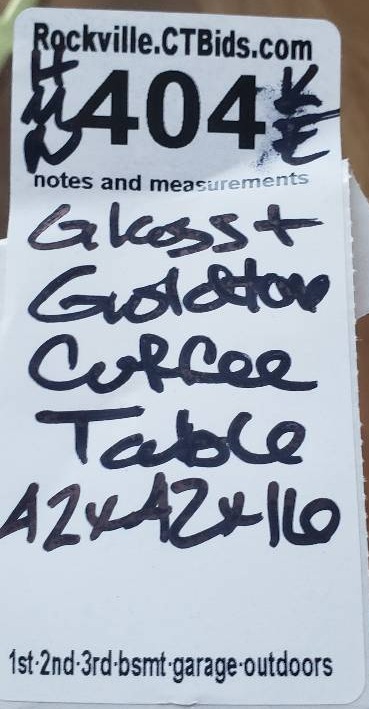 Rockville.CTBids.com
404
notes and measurements
Glass +
Goldton
Coffee
Table
42x42x16
1st·2nd·3rd·bsmt·garage·outdoors